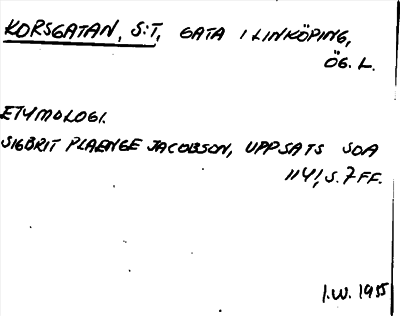 KORSGATAN, S:T, GATA I LINKÖPING,
ÖG. L.
ETYMOLOGI.
SIGBRIT PLAENGE JACOBSON, UPPSATS SOA
1141, S. 7 FF.
I.W. 1955